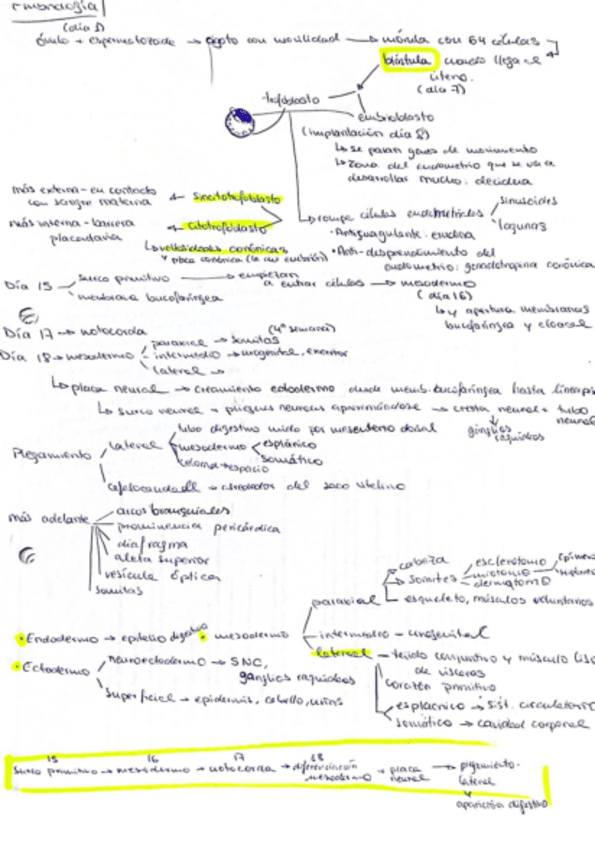 Embriología
(día 1)
óvulo + espermatozoide → cigoto con motilidad → mórula con 64 células
blástula cuando llega al
útero.
(día 7)
trofoblasto
embrioblasto
(implantación día 8)
↳ se paran genes de movimiento
↳ zona del endometrio que se va a
desarrollar mucho: decidua
más externa - en contacto
con sangre materna ← sincitiotrofoblasto
más interna - barrera
placentaria ← citotrofoblasto
↳ vellosidades coriónicas
y placa coriónica
↳ rompe células endometriales
sinusoides
lagunas
· Antiguagulante:
· Anti-desprendimiento del
endometrio: gonadotropina coriónica
Día 15
surco primitivo → empiezan
a entrar células → mesodermo
(día 16)
membrana bucofaríngea
↳ y apertura membranas
bucofaríngea y cloacal
Día 17 → notocorda
(4ª semana)
Día 18 → mesodermo
paraxial → somitas
intermedio → urogenital,
lateral →
↳ placa neural → crecimiento ectodermo desde memb. bucofaríngea hasta línea
↳ surco neural + pliegues neurales aproximándose → cresta neural + tubo
neural
ganglios
raquídeos
Plegamiento
lateral
tubo digestivo unido por mesenterio dorsal
mesodermo
esplácnico
somático
celoma → espacio
cefalocaudal → alrededor del saco vitelino
más adelante
arcos branquiales
prominencia pericárdica
diafragma
aleta superior
vesícula óptica
somitas
· Endodermo → epitelio digestivo
· mesodermo
paraxial
cabeza
somites
esclerotomo
miotomo
dermatomo
esqueleto, músculos voluntarios
intermedio - urogenital
lateral → tejido conjuntivo y músculo liso
de vísceras
corazón primitivo
esplácnico → sist. circulatorio
somático → cavidad corporal
· Ectodermo
Neuroectodermo → SNC,
ganglios raquídeos
superficial → epidermis, cabello, uñas
15 16 17 18
surco primitivo → mesodermo → notocorda → diferenciación
mesodermo → placa
neural → plegamiento
lateral
aparición digestivo